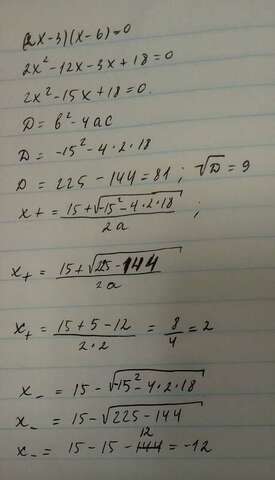 (2x-3)(x-6)=0
2x²-12x-3x+18=0
2x²-15x+18=0.
D=b²-4ac
D=-15²-4·2·18
D=225-144=81; √D=9
x+=(15+√(-15²-4·2·18))/2a;
x+=(15+√(225-144))/2a
x+=(15+5-12)/(2·2)=8/4=2
x-=15-√(-15²-4·2·18)
x-=15-√(225-144)
12
x-=15-15-144=-12